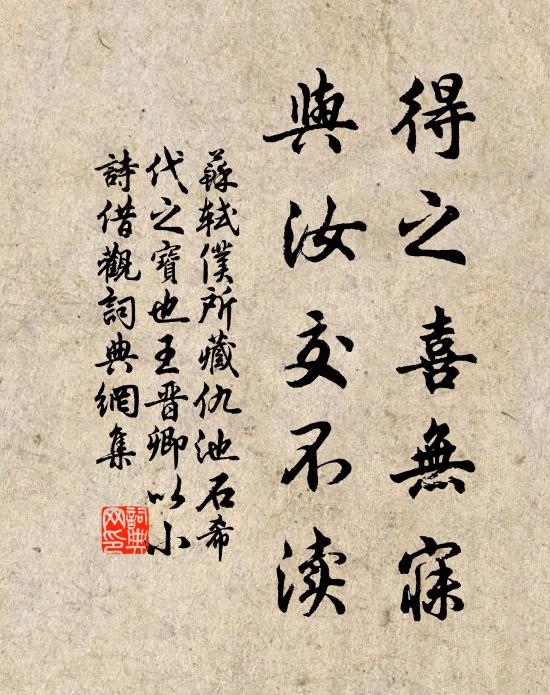 得之喜無寐
與汝交不渎
蘇軾僕所藏仇池石希
代之寶也王晋卿以小
詩借觀詞典網集
詞典
网印